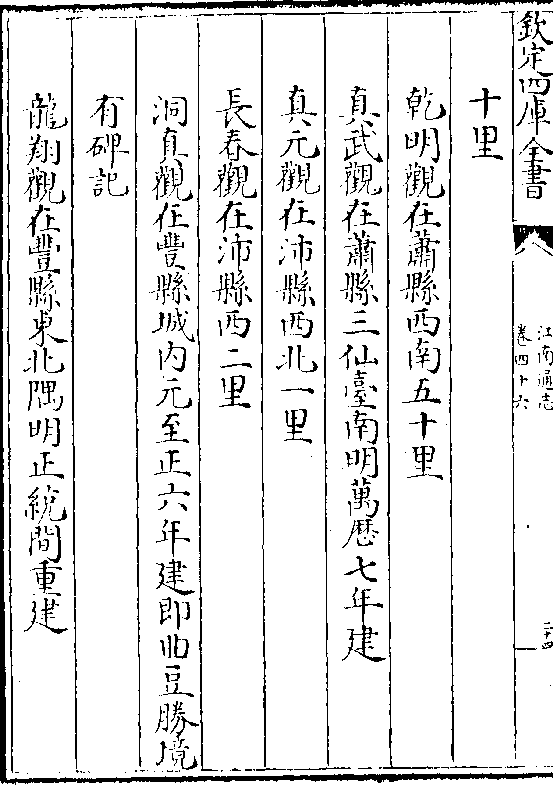 欽定四庫全書
江南通志
卷四十六
二十四
十里
乾明觀在蕭縣西南五十里
真武觀在蕭縣三仙臺南明萬歷七年建
真元觀在沛縣西北一里
長春觀在沛縣西二里
洞真觀在豐縣城内元至正六年建即丗豆勝境
有碑記
龍翔觀在豐縣東北隅明正統間重建